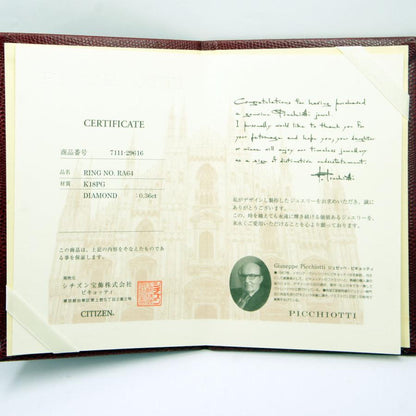 CERTIFICATE
商品番号 7111-29616
品名 RING NO. RA64
材質 K18PG
DIAMOND : 0.36ct
この商品は、上記の内容をそなえたものである事を保証します。
発売元
シチズン宝飾株式会社
ピキョッティ
CITIZEN.
Congratulations for having purchased
a genuine Picchiotti jewel.
I personally would like to thank you for
your patronage and hope you, your daughter
or niece will enjoy our timeless jewellery
as a sign of distinctive understatement.
私がデザインし製作したジュエリーをお求めいただき、誠に
ありがとうございます。
この、時を越えても永遠に輝き続ける価値あるジュエリーを、
末永くご愛用いただけることを心より願っております。
Giuseppe Picchiotti ジュゼッペ・ピキョッティ
PICCHIOTTI